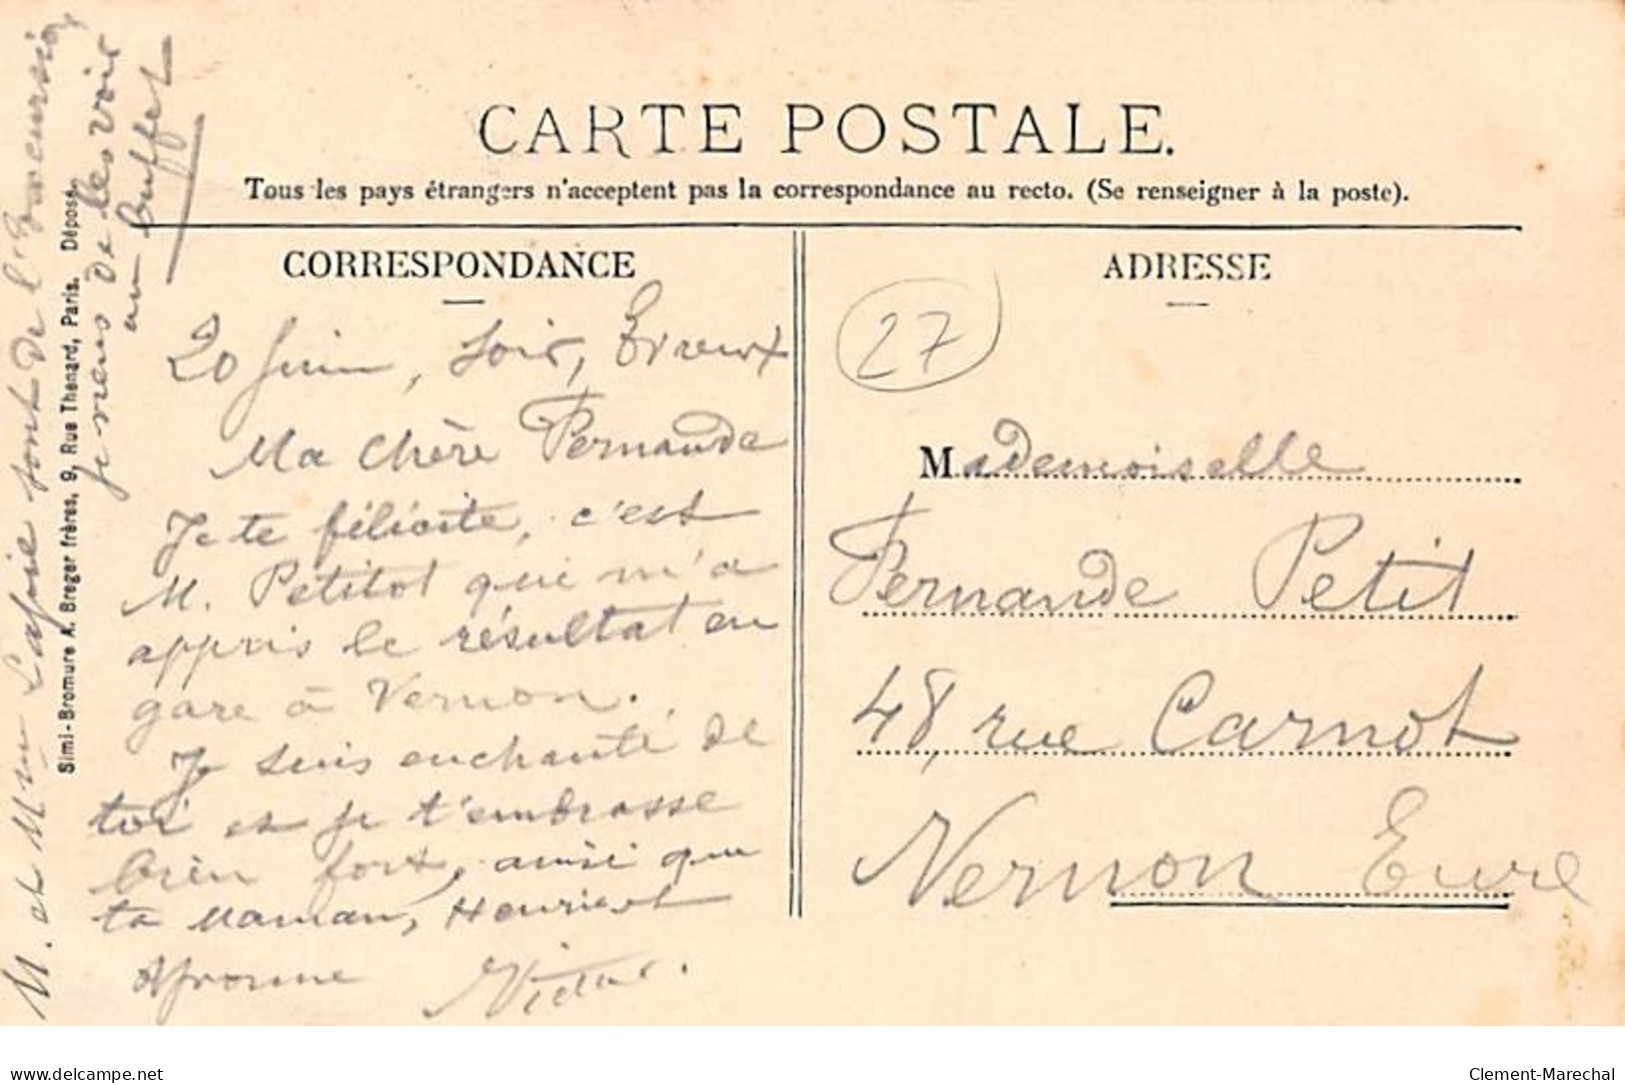 CARTE POSTALE.
Tous les pays étrangers n'acceptent pas la correspondance au recto. (Se renseigner à la poste).
CORRESPONDANCE
20 Juin, Soir, Evreux
Ma Chère Fernande
Je te félicite, c'est
M. Petitot qui m'a
appris le résultat en
gare à Vernon.
Je suis enchanté de
toi et je t'embrasse
bien fort, ainsi que
ta Maman, Henriet
Victor.
M. et Mme sont de l'Excursion
je viens de les voir
au Buffet
Simi-Bromure A. Breger frères, 9, Rue Thenard, Paris. Déposé.
ADRESSE
27
Mademoiselle
Fernande Petit
48, rue Carnot
Vernon Eure
www.delcampe.net
Clement-Marechal